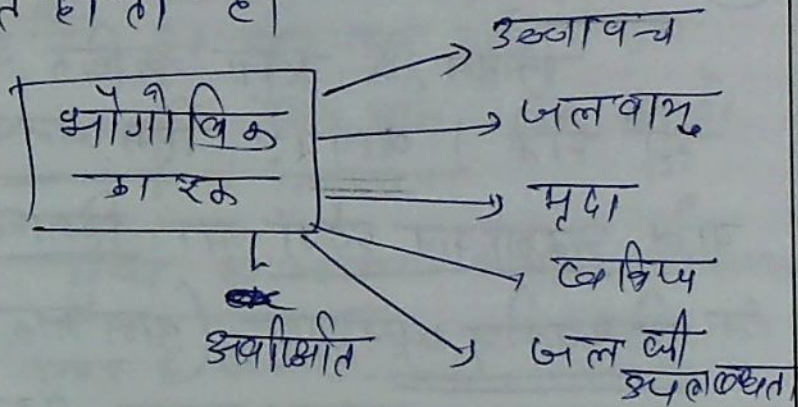 होता है।
भौगोलिक
कारक
उच्चावच
जलवायु
मृदा
खनिज
जल की
उपलब्धता
अवस्थिति